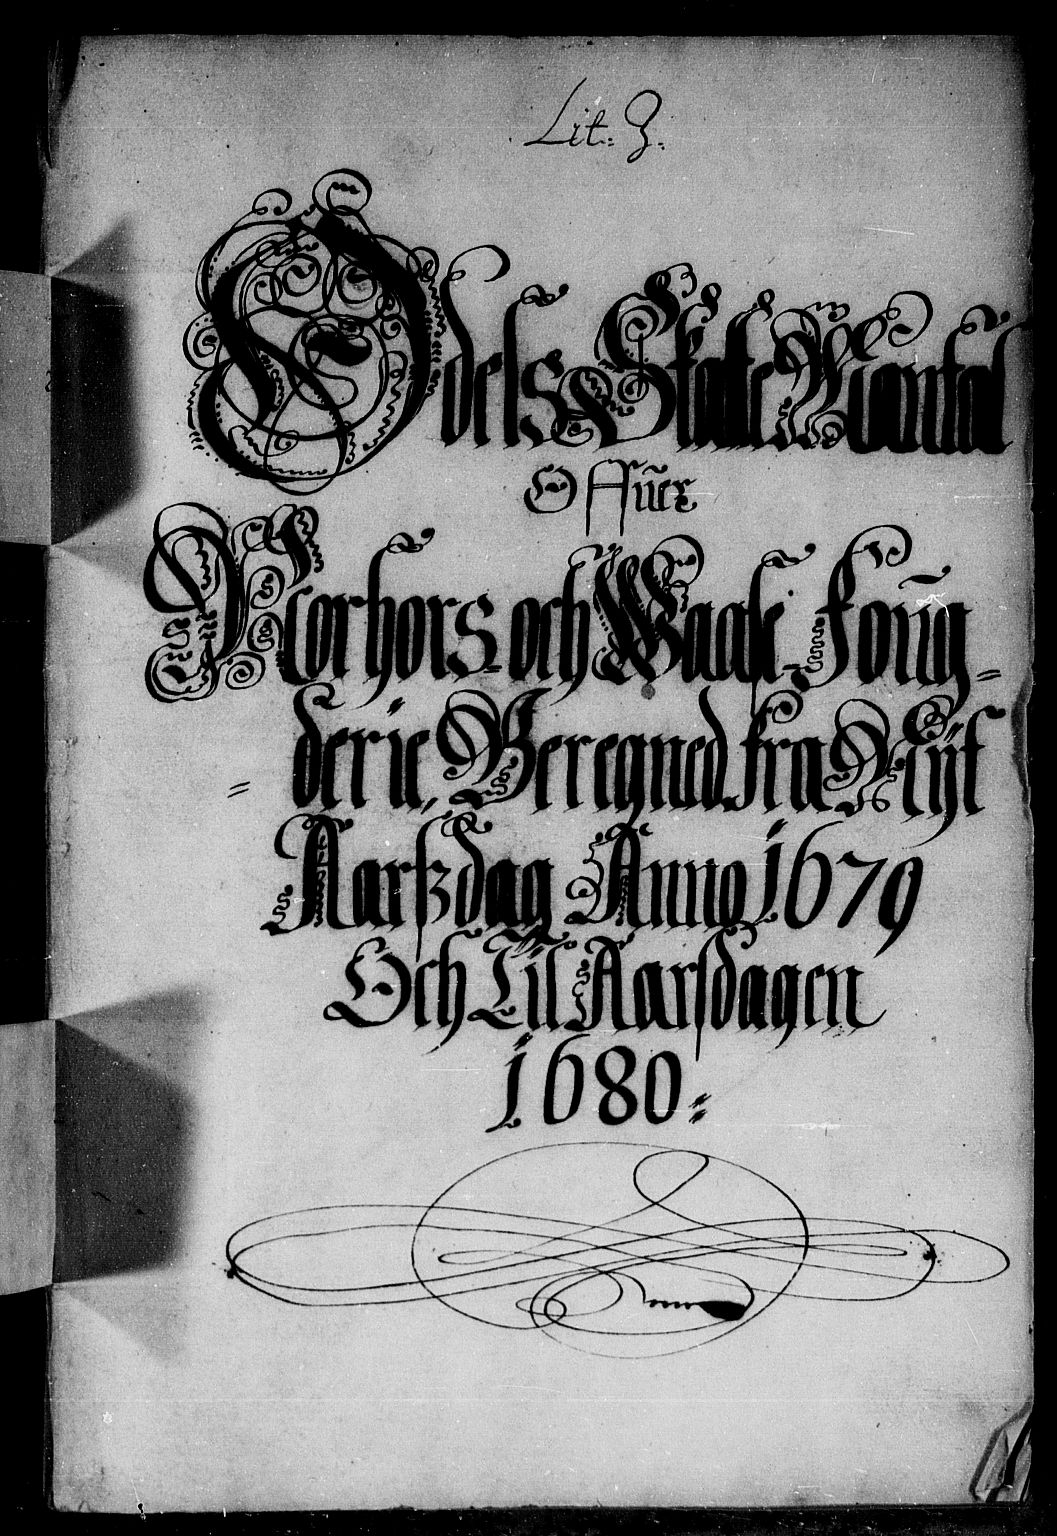 Lit. 3.
Odels Skatte Mantal
Offuer
Norhors och Waase foug=
= derie, Beregned fra Nyt
Aarszdag Anno 1679
Och Til Aarsdagen
1680 =